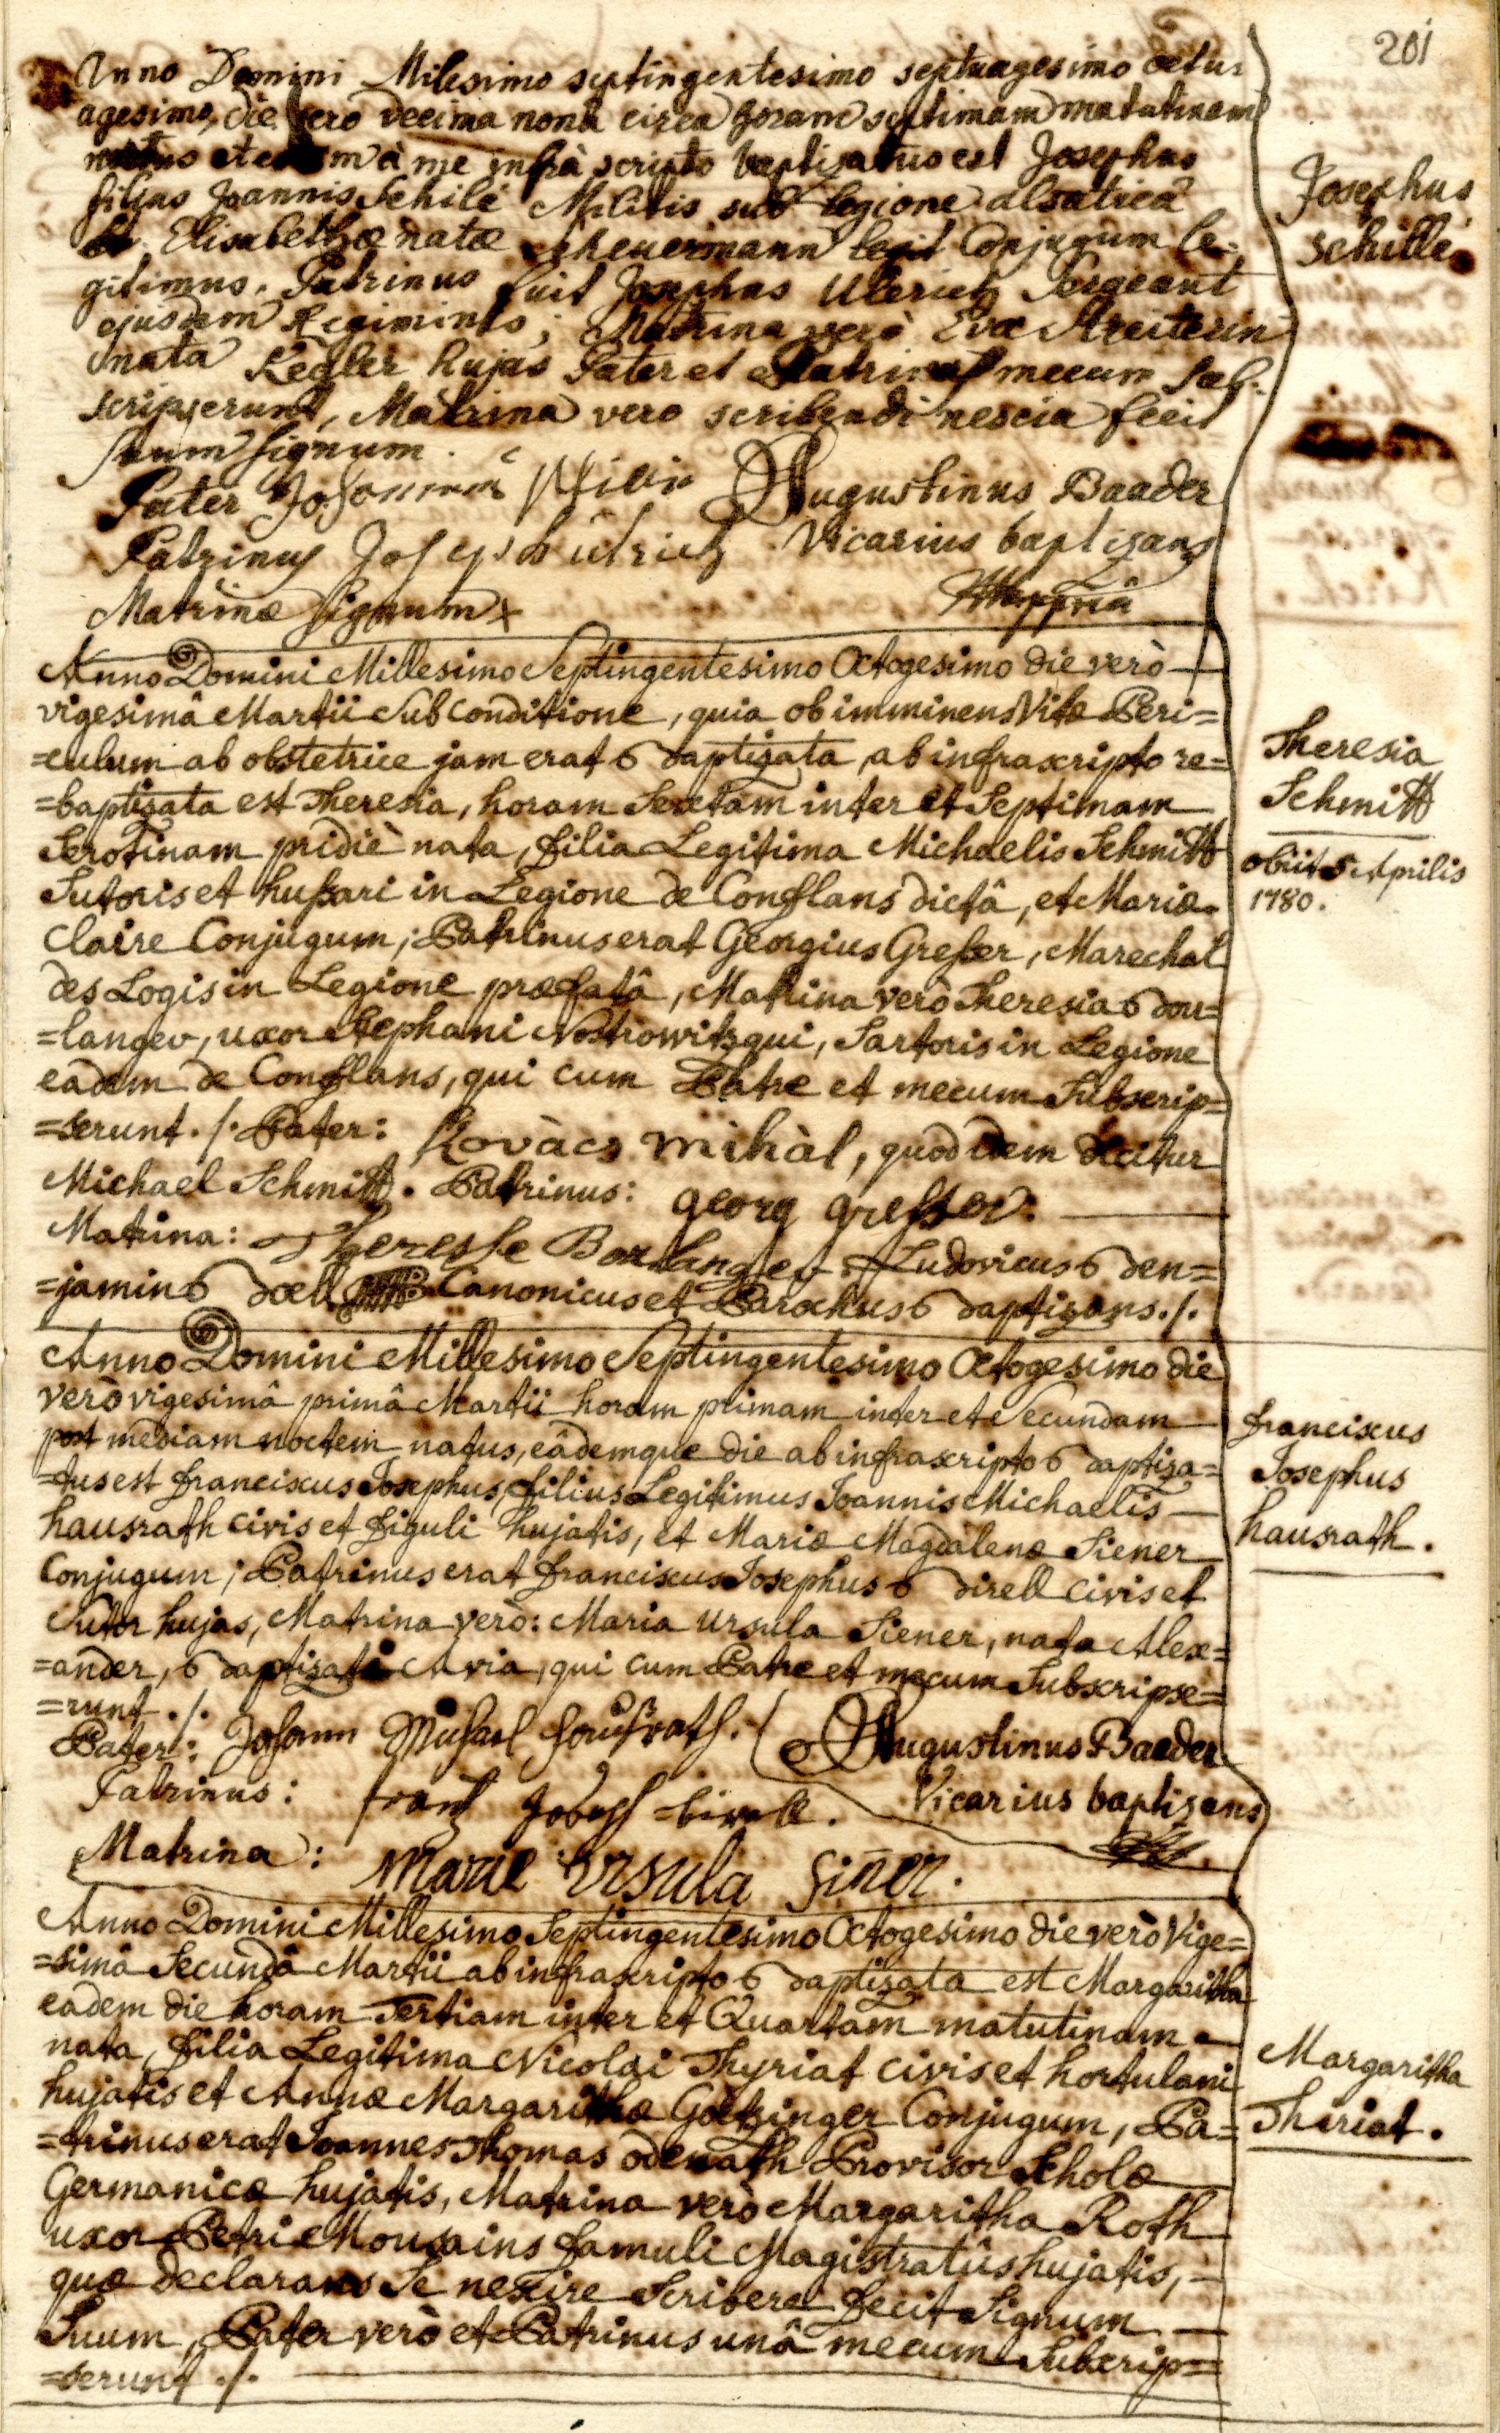 201
Anno Domini Milesimo septingentesimo septuagesimo octu=
agesimo, die vero decima nonâ circa horam septimam matutinam
natus et à me infrà scripto baptizatus est Josephus
filius Joannis Schilé Militis sub legione alsaticâ
et Elisabethæ natæ Scheuermann legit Conjugum le=
gitimus. Patrinus fuit Josephus Ulerich Sergeant
ejusdem Regiminis; Matrina verò Eva Streiterin
nata Kegler hujas Pater et Patrinus mecum sub=
scripserunt, Matrina vero scribendi nescia fecit
suum signum.
Josephus
Schille
Pater Johannes
Augustinus Baader
Patrinus Joseph ülrich
Vicarius baptizans
Matrinæ signum x
Mappriâ
Anno Domini Millesimo Septingentesimo Octogesimo die verò
vigesimâ Martii Sub conditione, quia ob imminens Vitæ Peri=
=culum ab obstetrice jam erat Baptizata, ab infrascripto re=
=baptizata est Theresia, horam Sextam inter et Septimam
Serotinam pridiè nata, filia Legitima Michaelis Schmitt
Sutoris et hußari in Legione de Conflans dictâ, et Mariæ
Claire Conjugum; Patrinus erat Georgius Greßer, Marechal
des Logis in Legione præfatâ, Matrina verò Theresia Bou=
=langer, uxor Stephani Nostrowitzqui, Sartoris in Legione
eadem de Conflans, qui cum Patre et mecum Subscrip=
=serunt ./. Pater: Kovàcs Mihàl, quod idem dicitur
Michael Schmitt. Patrinus: georg greßser.
Matrina: Theresse Boulangjer. Ludovicus Ben=
=jamin Boell Canonicus et Parochus Baptizans ./.
Theresia
Schmitt
obiit 5 Aprilis
1780.
Anno Domini Millesimo Septingentesimo Octogesimo die
verò vigesimâ primâ Martii horam primam inter et Secundam
post mediam noctem natus, eâdemque die ab infrascripto Baptiza=
=tus est franciscus Josephus, filius Legitimus Joannis Michaelis
hausrath civis et figuli hujatis, et Mariæ Magdalenæ Siener
Conjugum; Patrinus erat franciscus Josephus Birell civis et
Sutor hujas, Matrina verò: Maria Ursula Siener, nata Alex=
=ander, Baptizati Avia, qui cum Patre et mecum Subscripse=
=runt ./.
franciscus
Josephus
hausrath.
Pater: Johann Michael Haußrath.
Augustinus Baader
Patrinus: frantz Joseph birell.
Vicarius baptizans
Matrina: Marie Ursula Siner.
Anno Domini Millesimo Septingentesimo Octogesimo die verò Vige=
=simâ Secundâ Martii ab infrascripto Baptizata est Margaritha
eadem die horam Tertiam inter et Quartam matutinam
nata, filia Legitima Nicolai Thyriat civis et hortulani
hujatis et Annæ Margarithæ Goetzinger Conjugum, Pa=
=trinus erat Joannes Thomas Odenath Provisor Scholæ
Germanicæ hujatis, Matrina verò Margaritha Roth
uxor Petri Mousains famuli Magistratûs hujatis,
quæ declarans Se nescire Scribere fecit Signum
Suum, Pater verò et Patrinus unâ mecum Subscrip=
=serunt ./.
Margaritha
Thiriat.